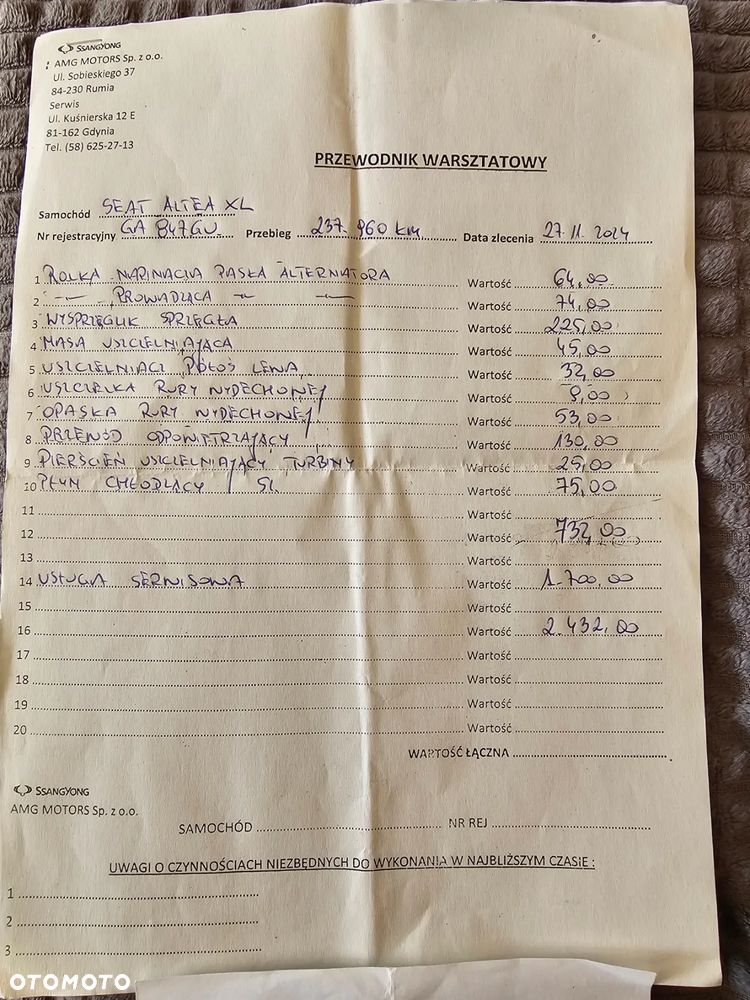 SSANGYONG
AMG MOTORS Sp. z o.o.
Ul. Sobieskiego 37
84-230 Rumia
Serwis
Ul. Kuśnierska 12 E
81-162 Gdynia
Tel. (58) 625-27-13
PRZEWODNIK WARSZTATOWY
Samochód SEAT ALTEA XL
Nr rejestracyjny GA 847GU Przebieg 237.960 KM Data zlecenia 27.11.2024
1 ROLKA NAPINACIA PASKA ALTERNATORA Wartość 64,00
2 -"- PROWADZĄCA -"- -"- Wartość 74,00
3 WYSPRZĘGLIK SPRZĘGŁA Wartość 225,00
4 MASA USZCZELNIAJĄCA Wartość 45,00
5 USZCZELNIACZ PÓŁOŚ LEWA Wartość 32,00
6 USZCZELKA RURY WYDECHOWEJ Wartość 9,00
7 OPASKA RURY WYDECHOWEJ Wartość 53,00
8 PRZEWÓD ODPOWIETRZAJĄCY Wartość 130,00
9 PIERŚCIEŃ USZCZELNIAJĄCY TURBINY Wartość 25,00
10 PŁYN CHŁODZĄCY / 5L. Wartość 75,00
11 Wartość
12 Wartość 732,00
13 Wartość
14 USŁUGA SERWISOWA Wartość 1.700,00
15 Wartość
16 Wartość 2.432,00
17 Wartość
18 Wartość
19 Wartość
20 Wartość
WARTOŚĆ ŁĄCZNA
SSANGYONG
AMG MOTORS Sp. z o.o.
SAMOCHÓD NR REJ
UWAGI O CZYNNOŚCIACH NIEZBĘDNYCH DO WYKONANIA W NAJBLIŻSZYM CZASIE :
1
2
3
OTOMOTO